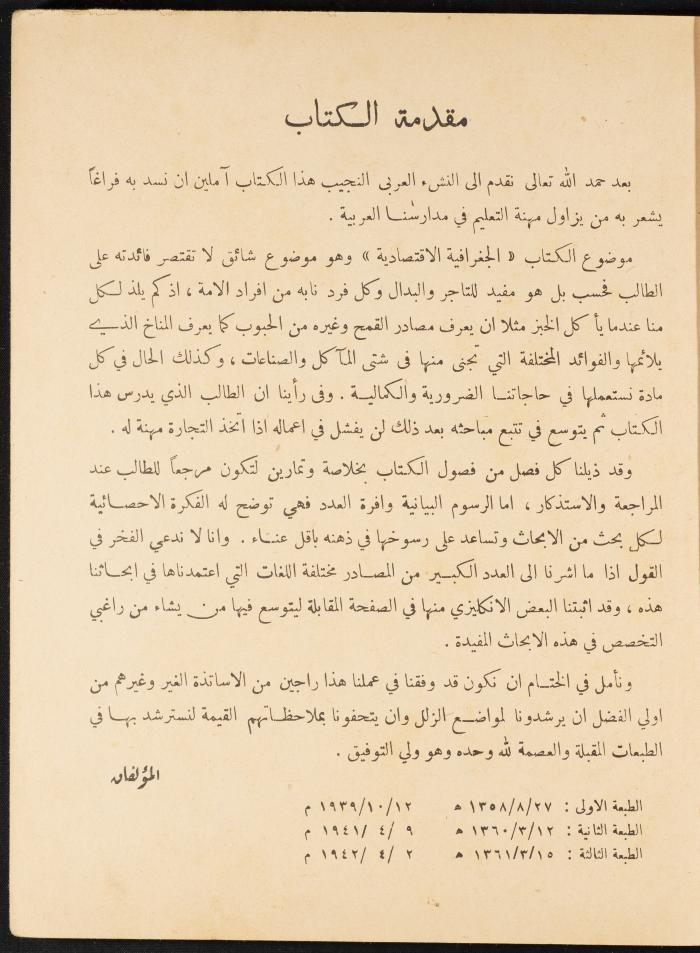 مقدمة الكتاب
بعد حمد الله تعالى نقدم الى النشء العربي النجيب هذا الكتاب آملين ان نسد به فراغاً
يشعر به من يزاول مهنة التعليم في مدارسنا العربية .
موضوع الكتاب « الجغرافية الاقتصادية » وهو موضوع شائق لا تقتصر فائدته على
الطالب فحسب بل هو مفيد للتاجر والبدال وكل فرد نابه من افراد الامة ، اذ كم يلذ لكل
منا عندما يأكل الخبز مثلا ان يعرف مصادر القمح وغيره من الحبوب كما يعرف المناخ الذي
يلائمها والفوائد المختلفة التي تجنى منها في شتى المآكل والصناعات ، وكذلك الحال في كل
مادة نستعملها في حاجاتنا الضرورية والكمالية . وفى رأينا ان الطالب الذي يدرس هذا
الكتاب ثم يتوسع في تتبع مباحثه بعد ذلك لن يفشل في اعماله اذا اتخذ التجارة مهنة له .
وقد ذيلنا كل فصل من فصول الكتاب بخلاصة وتمارين لتكون مرجعاً للطالب عند
المراجعة والاستذكار ، اما الرسوم البيانية وافرة العدد فهي توضح له الفكرة الاحصائية
لكل بحث من الابحاث وتساعد على رسوخها في ذهنه باقل عناء . وانا لا ندعي الفخر في
القول اذا ما اشرنا الى العدد الكبير من المصادر مختلفة اللغات التي اعتمدناها في ابحاثنا
هذه ، وقد اثبتنا البعض الانكليزي منها في الصفحة المقابلة ليتوسع فيها من يشاء من راغبي
التخصص في هذه الابحاث المفيدة .
ونأمل في الختام ان نكون قد وفقنا في عملنا هذا راجين من الاساتذة الغير وغيرهم من
اولي الفضل ان يرشدونا لمواضع الزلل وان يتحفونا بملاحظاتهم القيمة لنسترشد بها في
الطبعات المقبلة والعصمة لله وحده وهو ولي التوفيق .
المؤلفان
الطبعة الاولى : ١٣٥٨/٨/٢٧ ه ١٩٣٩/١٠/١٢ م
الطبعة الثانية : ١٣٦٠/٣/١٢ ه ٩ /٤ /١٩٤١ م
الطبعة الثالثة : ١٣٦١/٣/١٥ ه ٢ /٤ /١٩٤٢ م